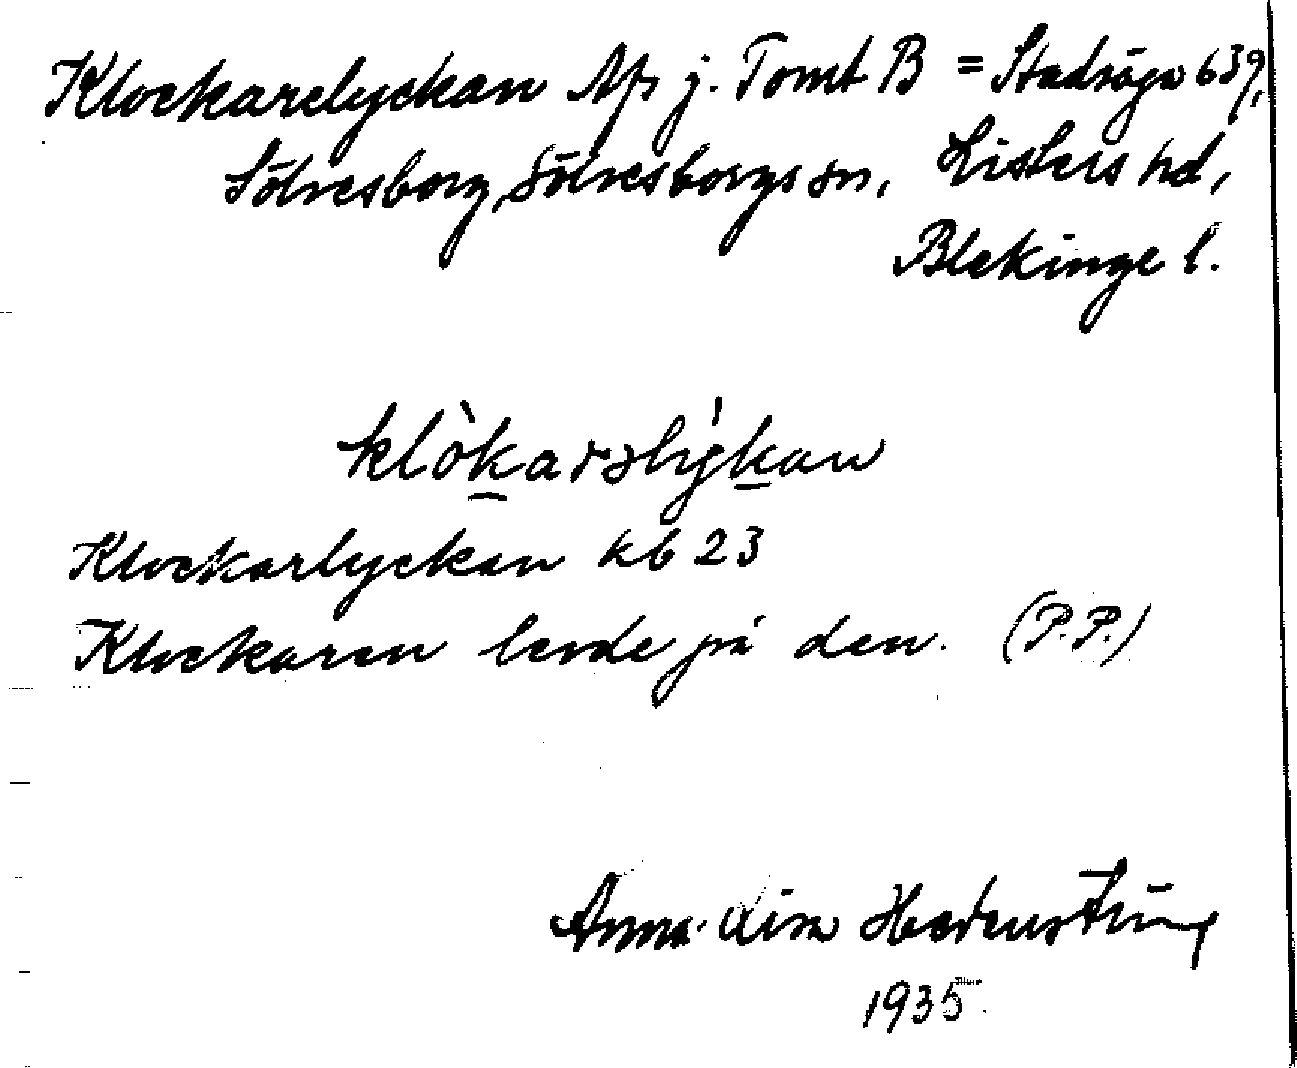 Klockarelyckan Åp j. Tomt B = Stadsäga 639,
Sölvesborg, Sölvesborgs sn, Listers hd,
Blekinge l.
klòkarəlýkan
Klockarlyckan kb 23
Klockaren levde på den. (P.P.)
Anna-Lisa Hedenström
1935